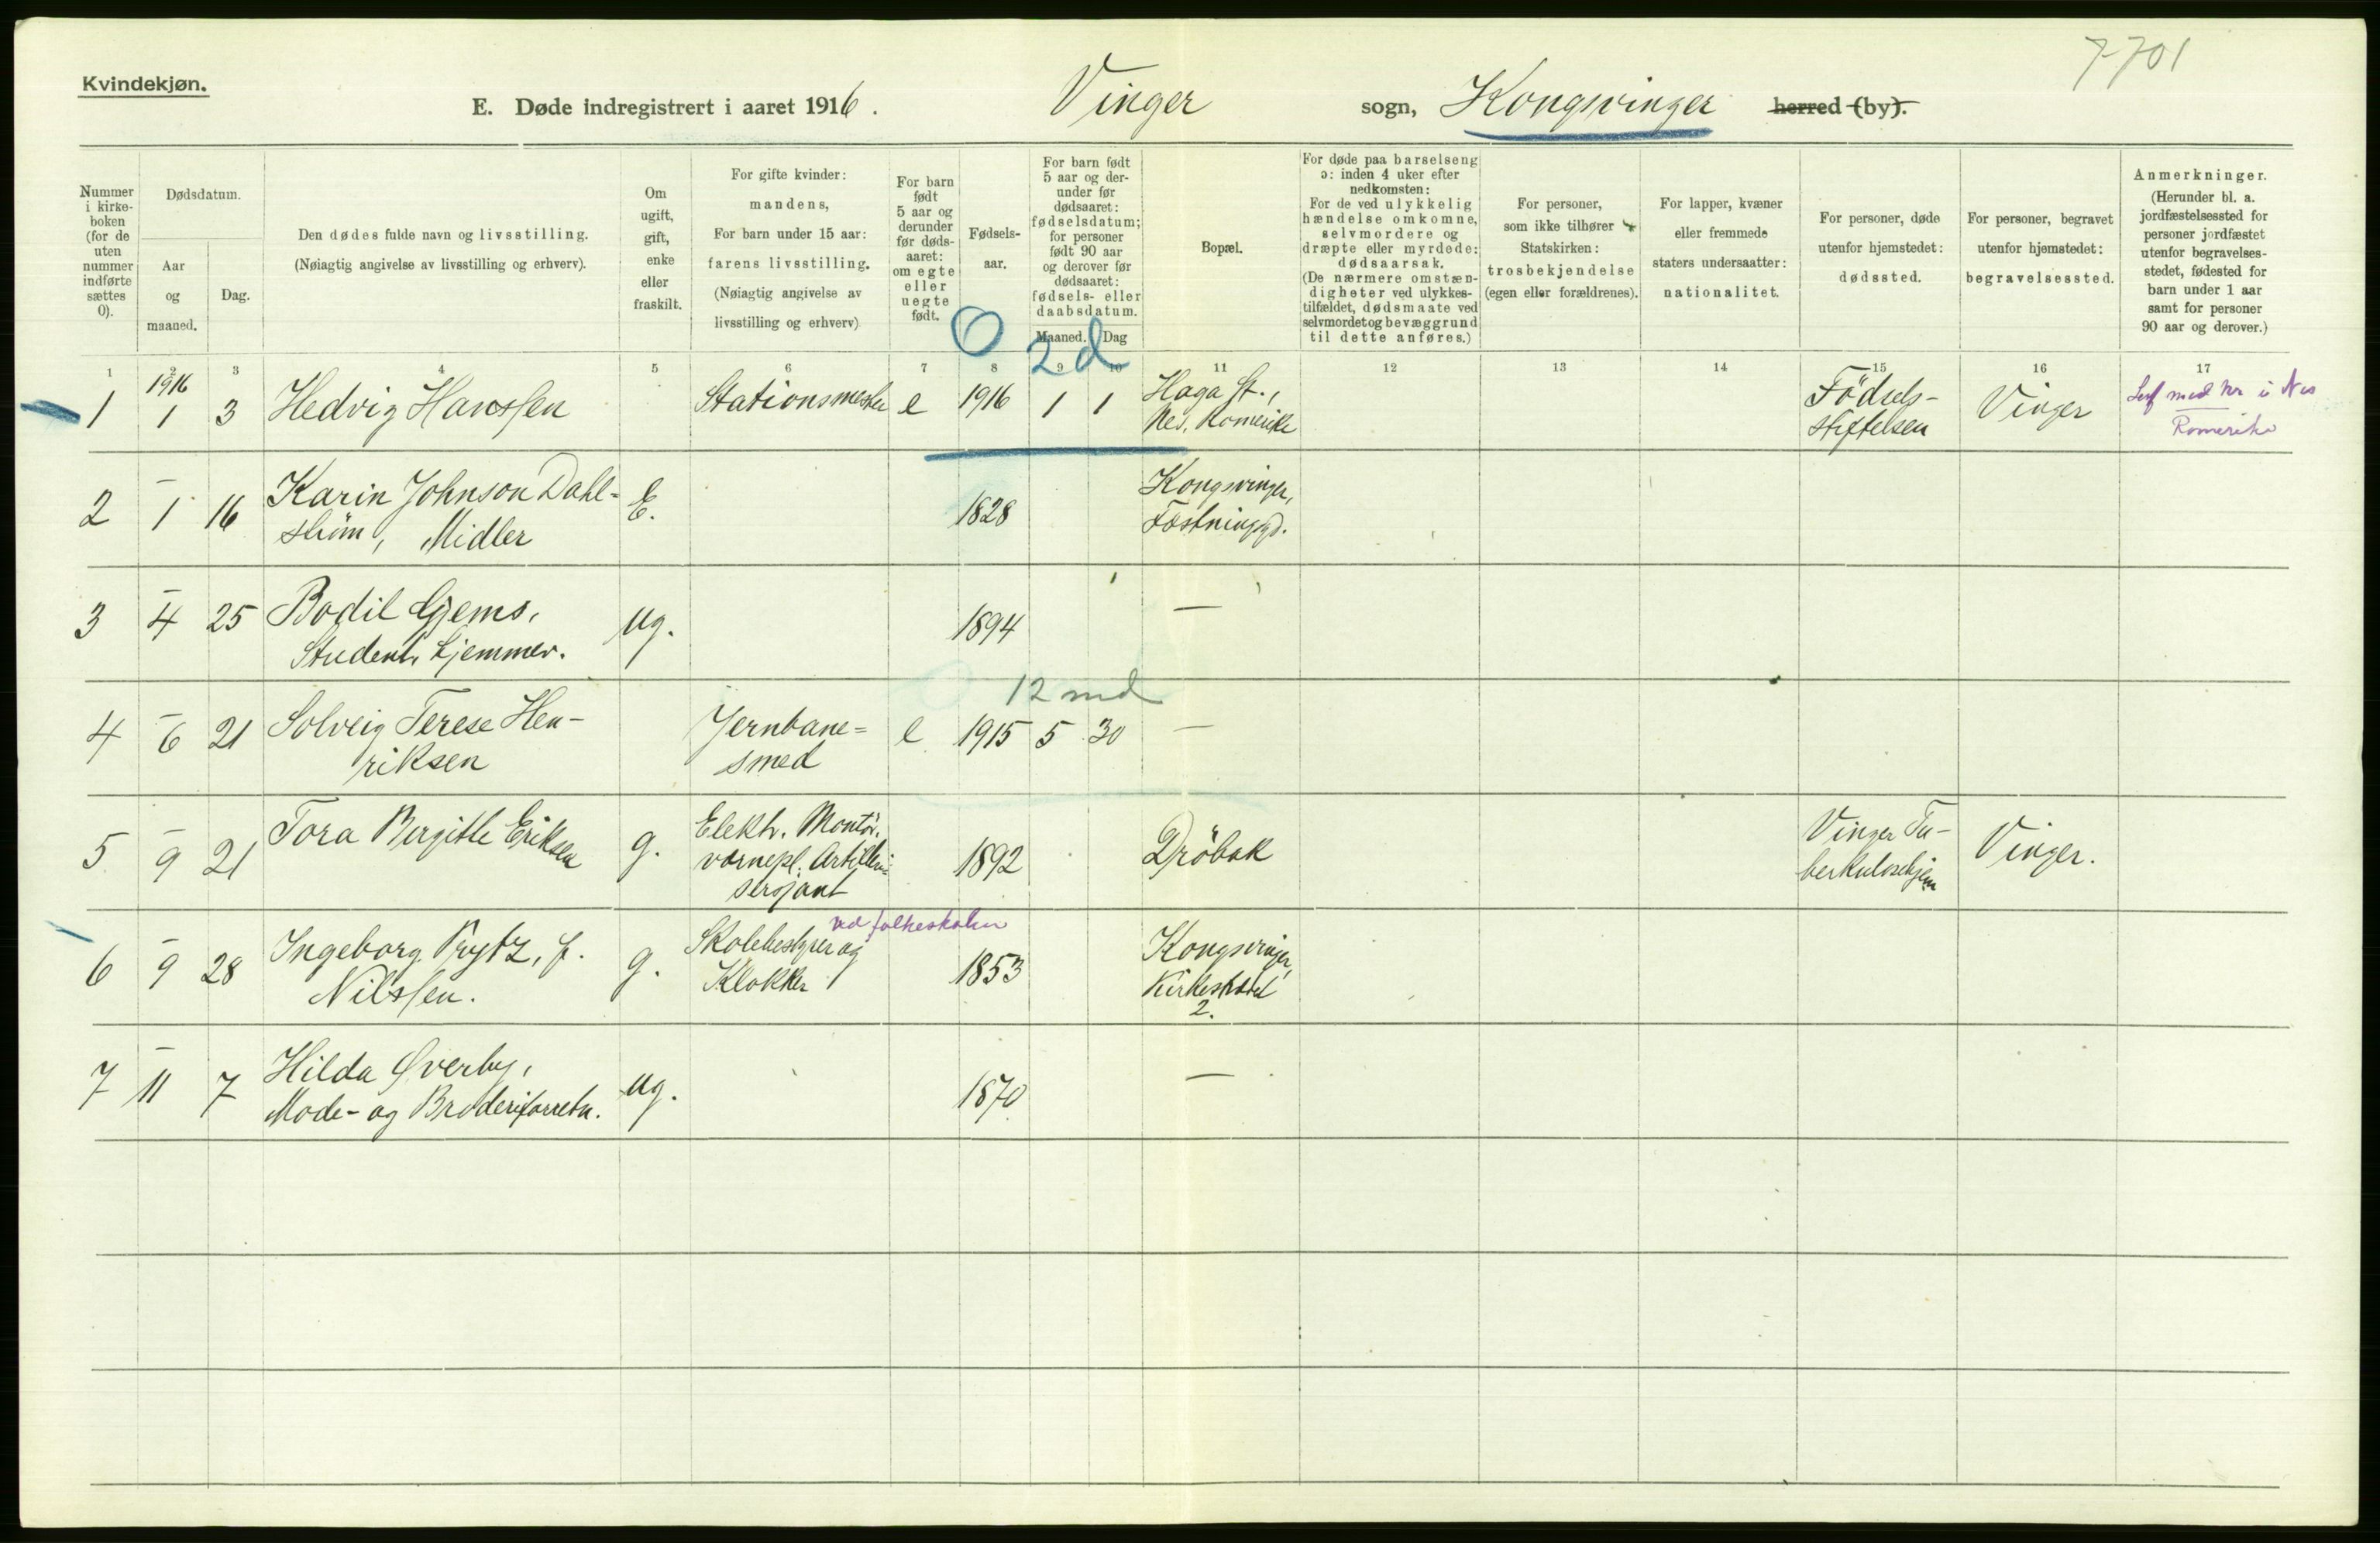 7-701
Kvindekjøn.
E. Døde indregistrert i aaret 1916. Vinger sogn, Kongsvinger herred (by).
Nummer i kirke- boken (for de uten nummer indførte sættes 0).
Dødsdatum.
Aar og maaned.
Dag.
Den dødes fulde navn og livsstilling.
(Nøiagtig angivelse av livsstilling og erhverv).
Om ugift, gift, enke eller fraskilt.
For gifte kvinder:
mandens,
For barn under 15 aar:
farens livsstilling.
(Nøiagtig angivelse av
livsstilling og erhverv)
For barn født 5 aar og derunder før døds- aaret: om egte eller uegte født.
Fødsels- aar.
For barn født 5 aar og der- under før dødsaaret: fødselsdatum; for personer født 90 aar og derover før dødsaaret: fødsels- eller daabsdatum.
Maaned. Dag
Bopæl.
For døde paa barselseng ɔ: inden 4 uker efter nedkomsten:
For de ved ulykkelig hændelse omkomne, selvmordere og dræpte eller myrdede: dødsaarsak.
(De nærmere omstæn- digheter ved ulykkes- tilfældet, dødsmaate ved selvmordet og bevæggrund til dette anføres.)
For personer, som ikke tilhører Statskirken: trosbekjendelse (egen eller forældrenes).
For lapper, kvæner eller fremmede staters undersaatter: nationalitet.
For personer, døde utenfor hjemstedet: dødssted.
For personer, begravet utenfor hjemstedet: begravelsessted.
Anmerkninger.
(Herunder bl. a. jordfæstelsessted for personer jordfæstet utenfor begravelses- stedet, fødested for barn under 1 aar samt for personer 90 aar og derover.)
1 2 3 4 5 6 7 8 9 10 11 12 13 14 15 16 17
0 2 d
1916
1 1 3 Hedvig Hanssen Stationsmester e 1916 1 1 Haga St., Nes, Romerike Födsels- stiftelsen Vinger med nr i Nes Romerike
2 – 1 16 Karin Johnson Dahl- ström, Midler E. 1828 Kongsvinger, Fæstningsgd.
3 – 4 25 Bodil Gjems, Student, Hjemmev. ug. 1894 —
12 md
4 – 6 21 Solveig Terese Hen- riksen Jernbane= smed e 1915 5 30 —
5 – 9 21 Tora Bergitte Eriksen g. Elektr. Montör, vernepl. Artilleri= sersjant 1892 Dröbak Vinger Tu- berkulosehjem Vinger.
6 – 9 28 Ingeborg Prytz, f. Nilssen. g. Skolebestyrer og Klokker ved folkeskolen 1853 Kongsvinger, Kirkestræd 2.
7 – 11 7 Hilda Øverby, Mode- og Broderiforretn. ug. 1870 —